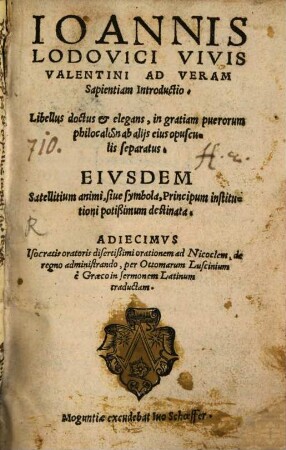 IOANNIS
LODOVICI VIVIS
VALENTINI AD VERAM
Sapientiam Introductio.
Libellus doctus & elegans, in gratiam puerorum
ab alijs eius opuscu-
lis separatus.
710.
EIVSDEM
Satellitium animi, siue symbola, Principum institu-
tioni potißimum destinata.
R
ADIECIMVS
Isocratis oratoris disertissimi orationem ad Nicoclem, de
regno administrando, per Ottomarum Luscinium
è Græco in sermonem Latinum
traductam.
Moguntiæ excudebat Iuo Schœffer.